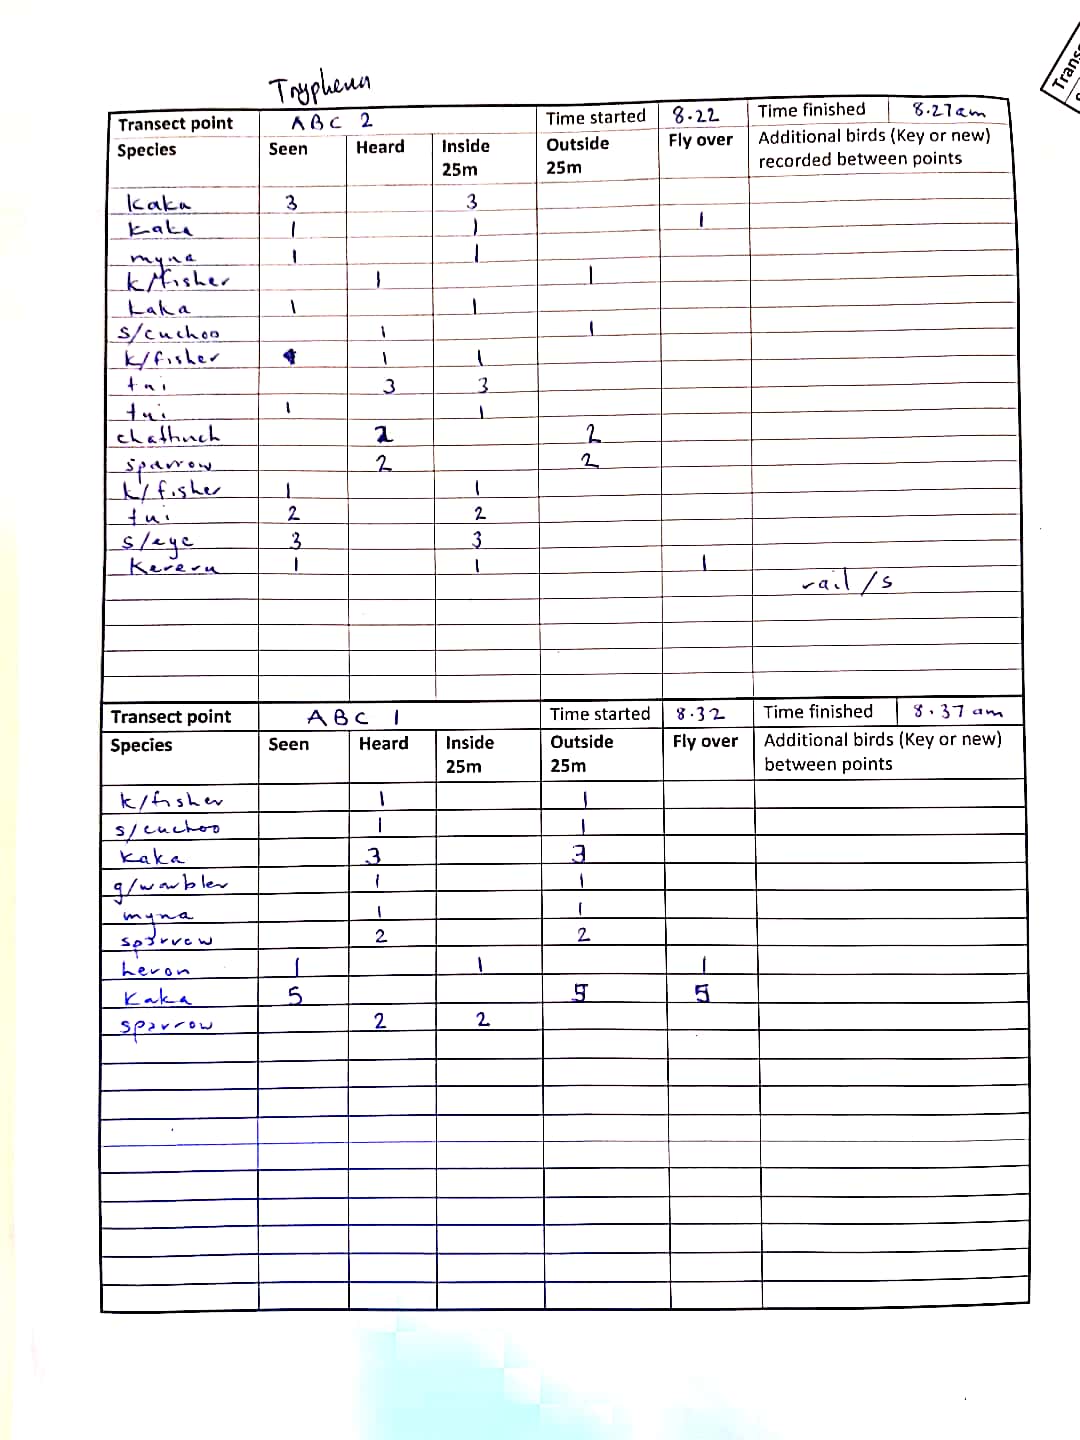 Tryphena
Transect point ABC 2 Time started 8.22 Time finished 8.27am
Species Seen Heard Inside 25m Outside 25m Fly over Additional birds (Key or new) recorded between points
kaka 3 3
kaka 1 1 1
myna 1 1
k/fisher 1 1
kaka 1 1
s/cuchoo 1 1
k/fisher 1 1
tui 3 3
tui 1 1
chaffinch 2 2
sparrow 2 2
k/fisher 1 1
tui 2 2
s/eye 3 3
Kereru 1 1 1
rail/s
Transect point ABC 1 Time started 8.32 Time finished 8.37 am
Species Seen Heard Inside 25m Outside 25m Fly over Additional birds (Key or new) between points
k/fisher 1 1
s/cuchoo 1 1
kaka 3 3
g/warbler 1 1
myna 1 1
sparrow 2 2
heron 1 1 1
Kaka 5 5 5
sparrow 2 2
Trans